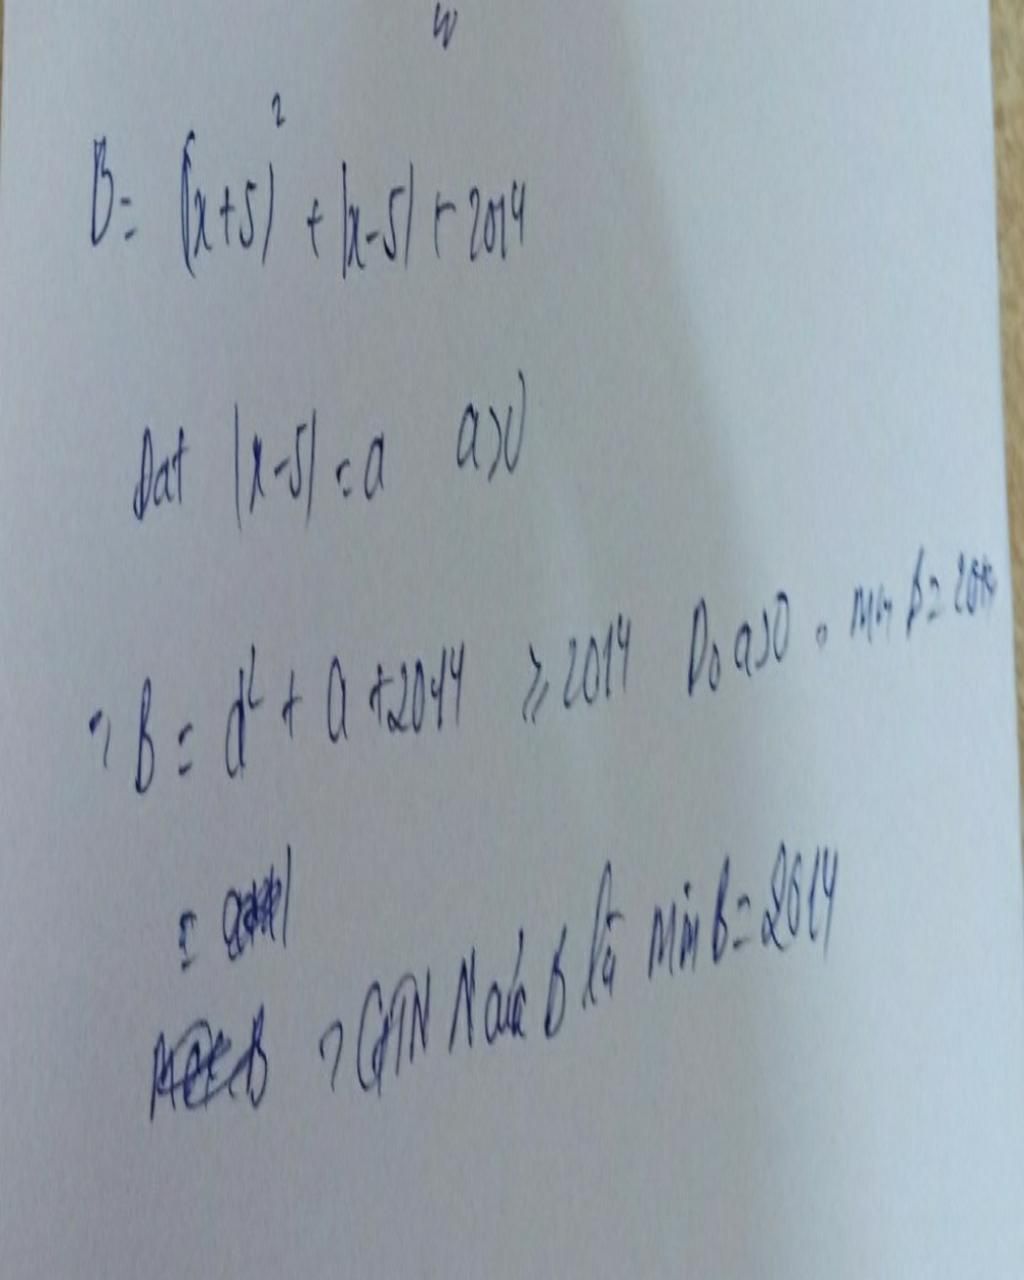 B = (x+5)² + |x-5| + 2014
Đat |x-5| = a a>0
B = a² + a + 2014 ≥ 2014 Do a>0 min B =
GTNN của B là min B = 2014